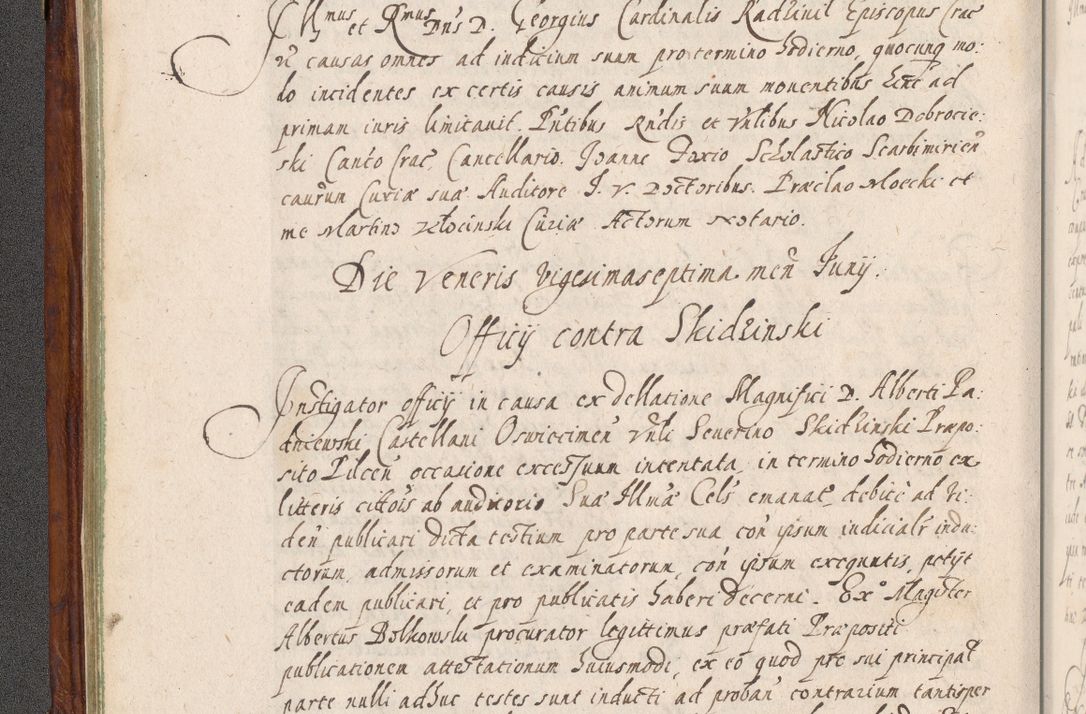 Illmus et Rmus Dns D. Georgius Cardinalis Radziuil Episcopus Crac
n causas omnes ad indicium suum pro termino hodierno, quocunq mo:
do incidentes ex certis causis animum suum mouentibus hinc ad
primam iuris limitauit. Pntibus Rndis et Vnlibus Nicolao Dobrocie:
ski Canto Crac Cancellario. Joanne Foxio Scholastico Scarbimirien
caurum Curiæ suæ Auditore J. V. Doctoribus. Præclao Moecki et
me Martino Złocinski Curiæ Actorum Notario.
Die Veneris vigesimaseptima men Junij.
Officij contra Skidzinski
Instigator officij in causa ex dellatione Magnifici D. Alberti Pa:
dniewski Castellani Oswiecimen Vnli Seuerino Skidzinski Præpo:
sito Pilcen occasione excessuum intentata, in termino hodierno ex
litteris cittois ab auditorio Suæ Illmæ Cels emanat debite ad vi:
den publicari dicta testium pro parte sua con ipsum indicialr indu:
ctorum, admissorum et examinatorum, con ipsum exequutis, petijt
eadem publicari, et pro publicatis haberi decerni. Exº Magister
Albertus Bolkowski procurator legittimus præfati Præpositi
publicationem attestationum huiusmodi, ex eo quod pro sui principal
parte nulli adhuc testes sunt inducti ad proban contrarium tantisper